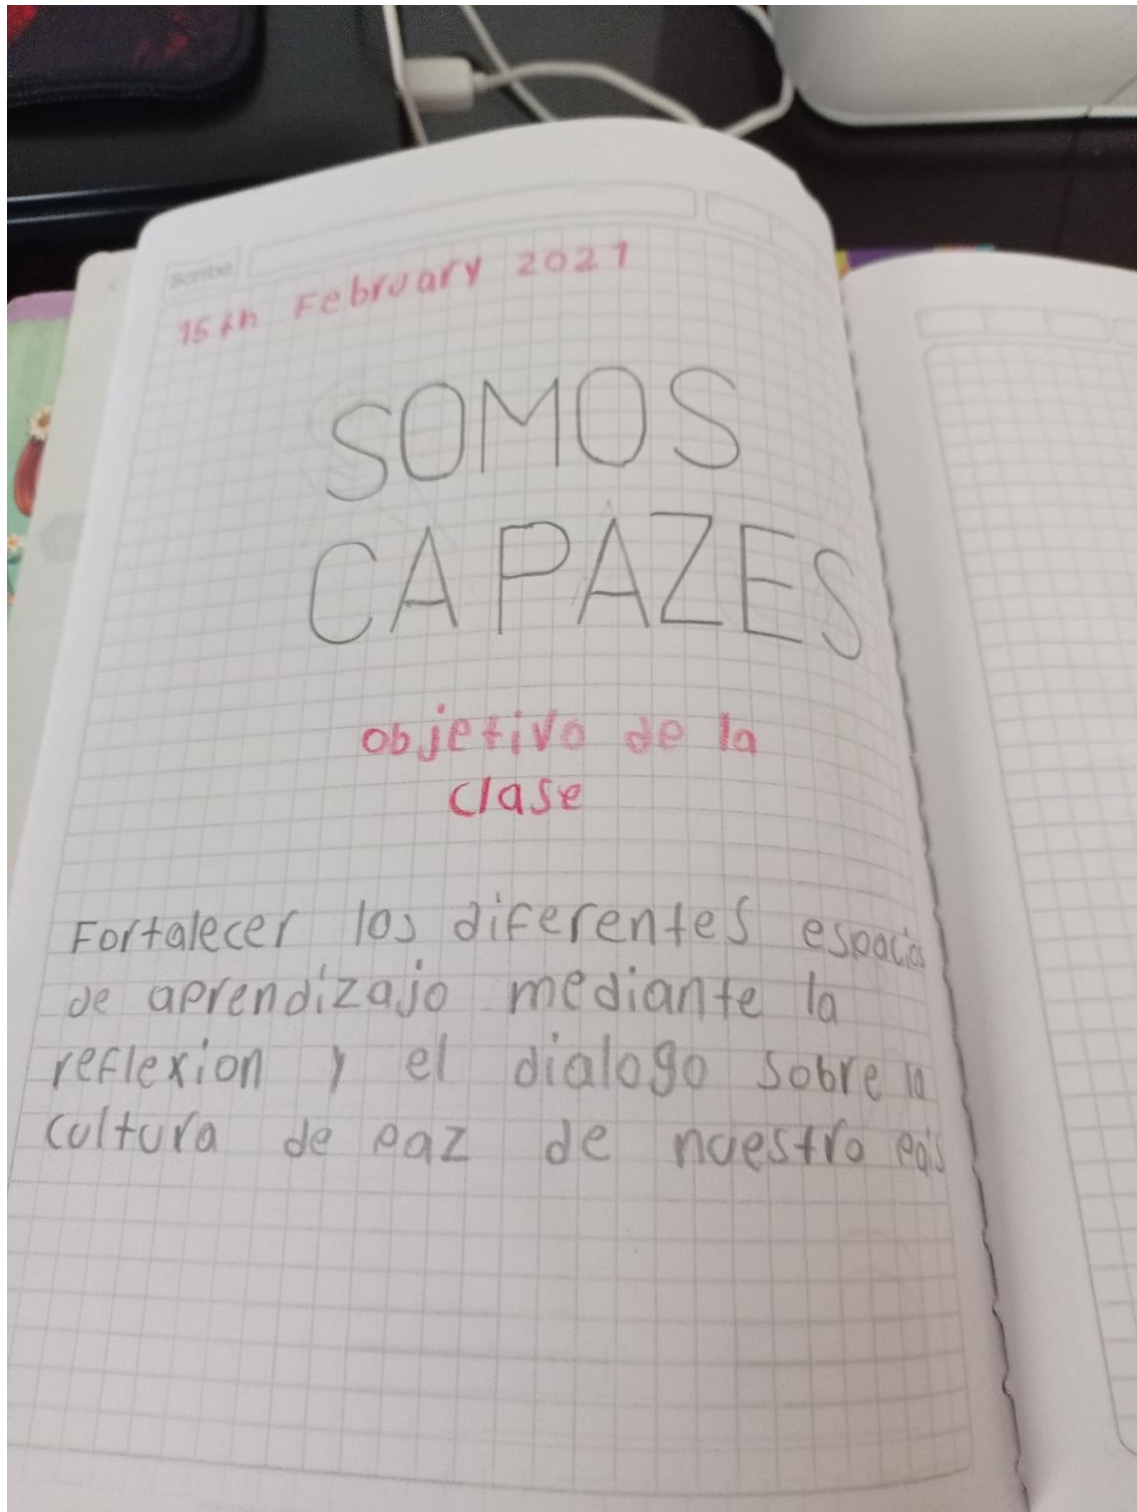 Scribe
15th February 2021
SOMOS
CAPAZES
objetivo de la
clase
Fortalecer los diferentes espacios
de aprendizajo mediante la
reflexion y el dialogo sobre la
cultura de paz de nuestro país